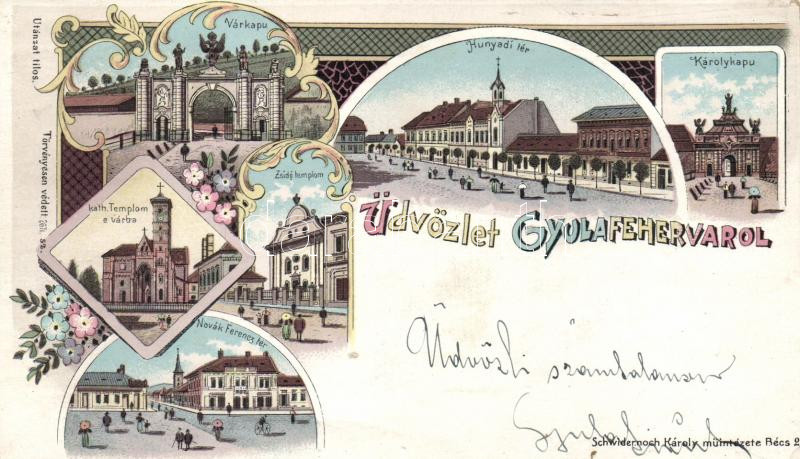 Utánzat tilos.
Törvényesen védett
sz.
Várkapu
Hunyadi tér
Károlykapu
kath. Templom
e várba
Zsidó templom
Üdvözlet GYULAFEHERVAROL
Novák Ferencz tér
Üdvözli
Schwidernoch Károly műintézete Bécs 2